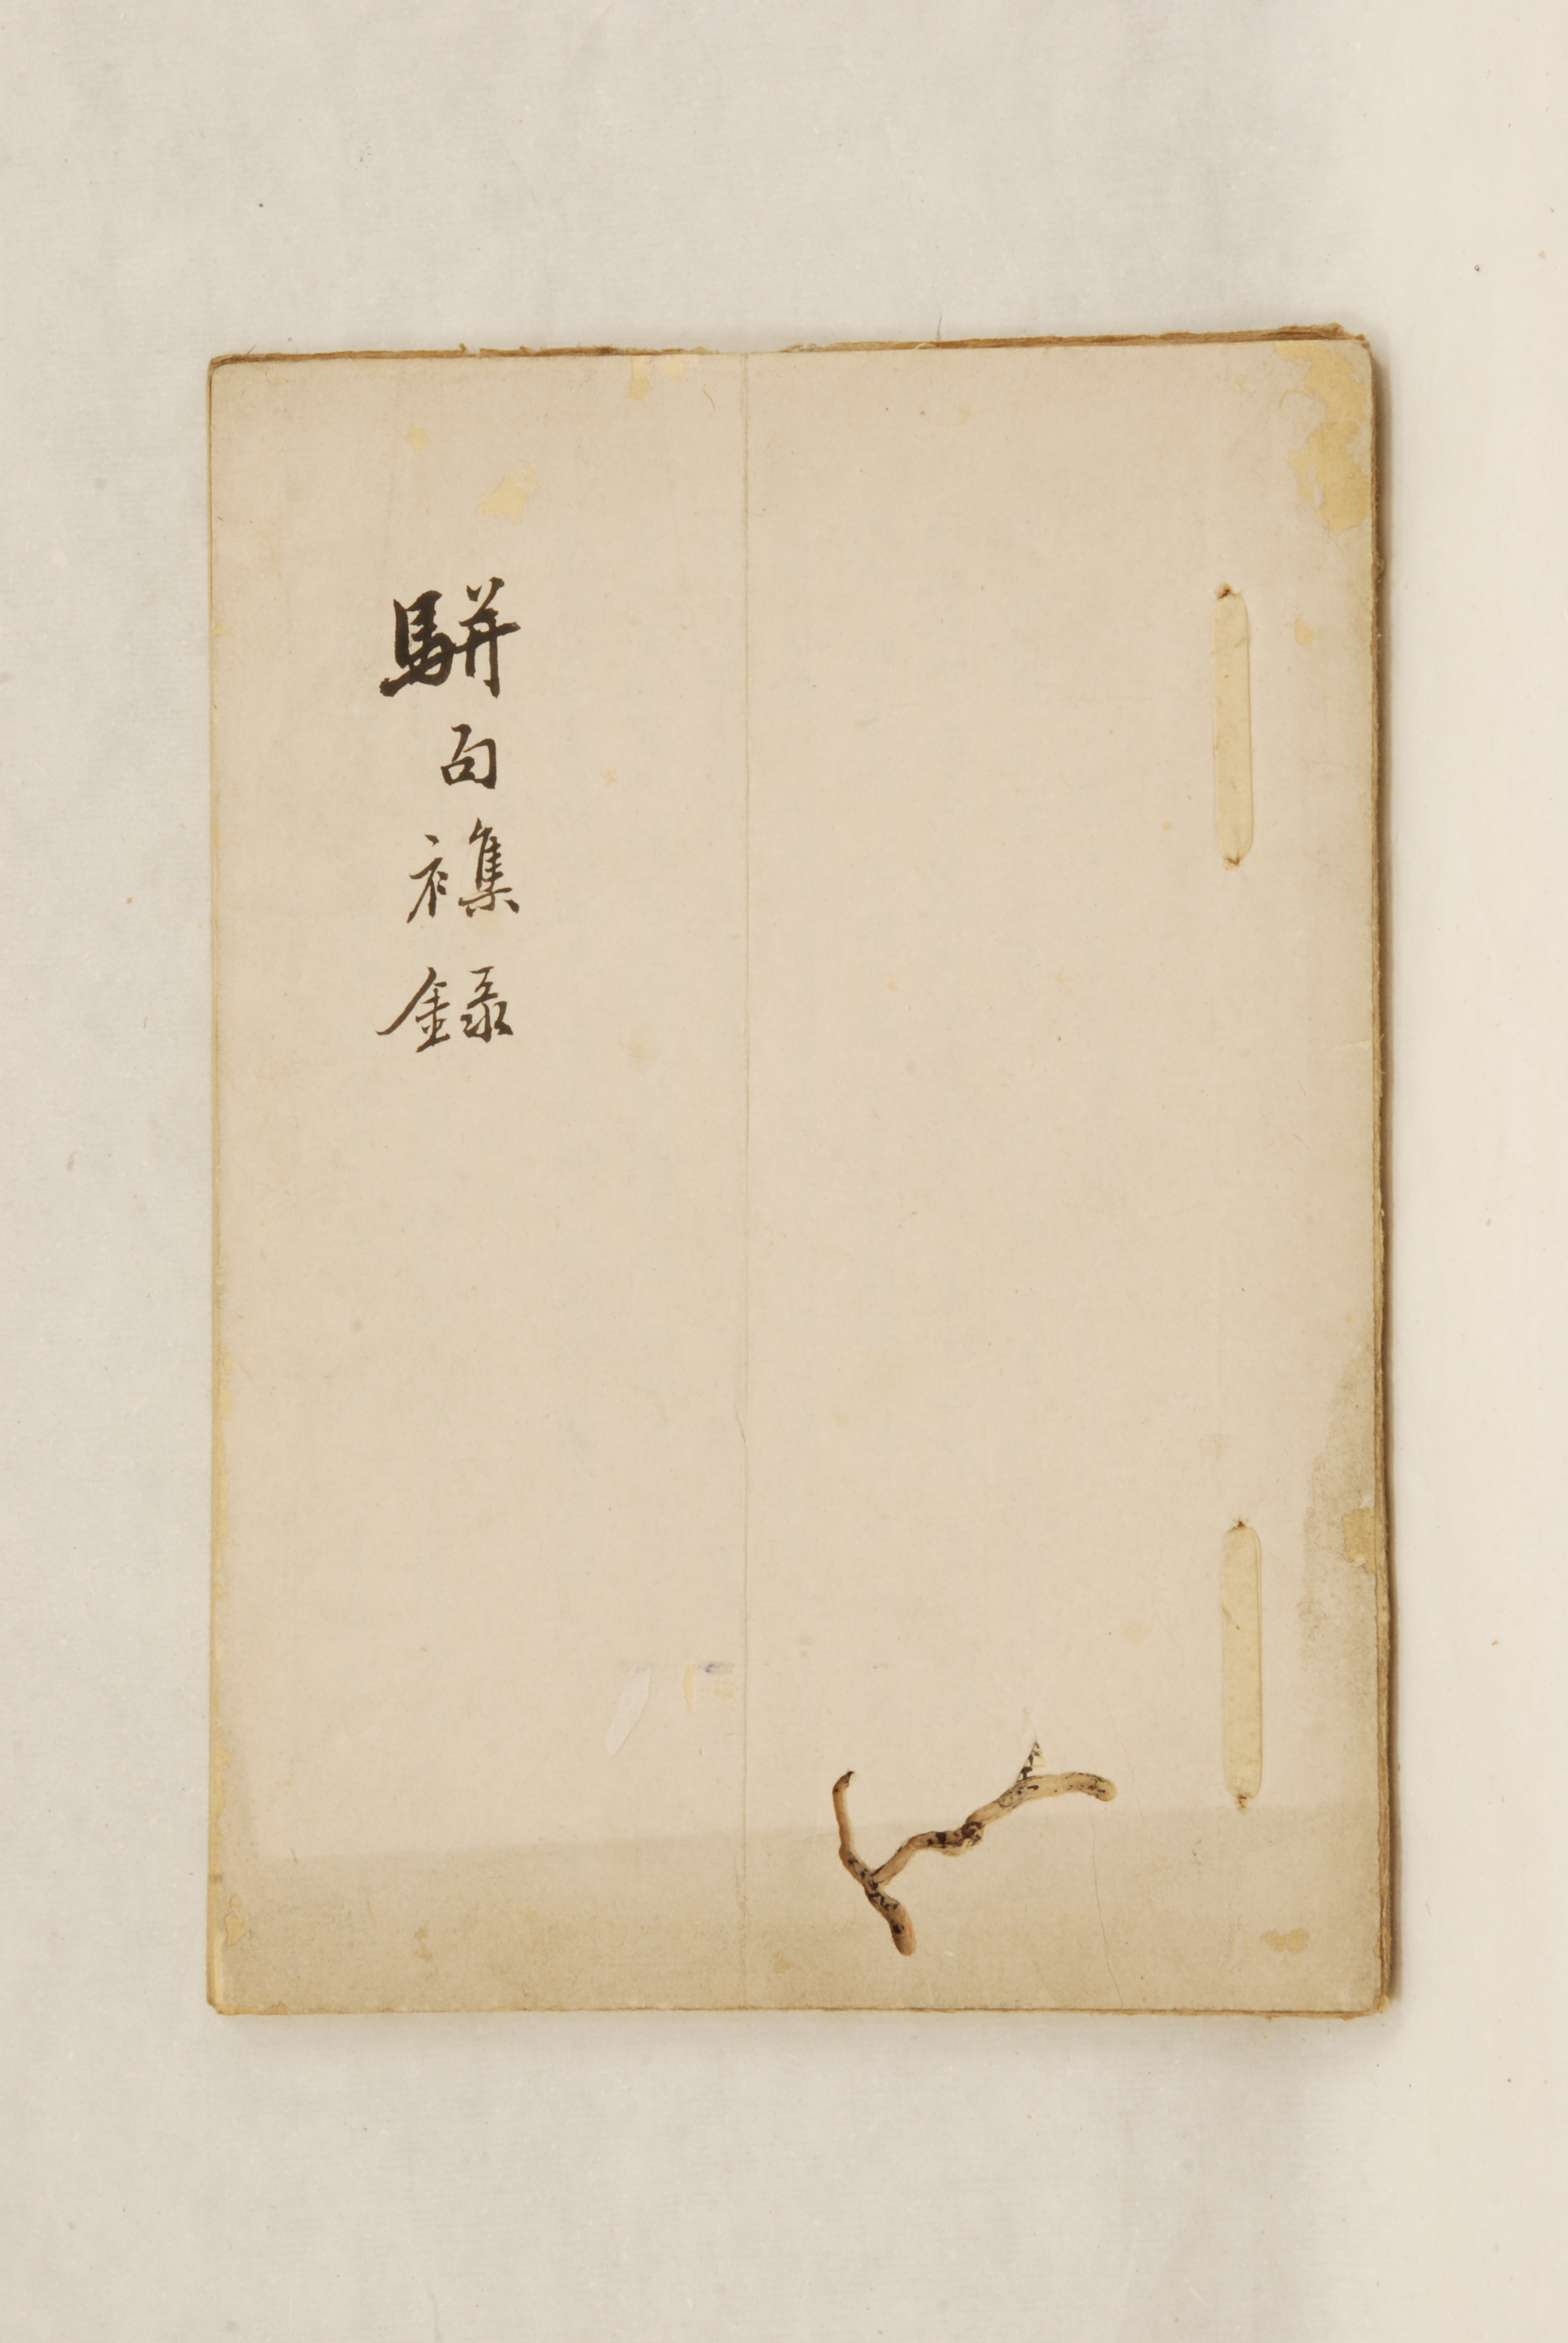 駢句襍錄